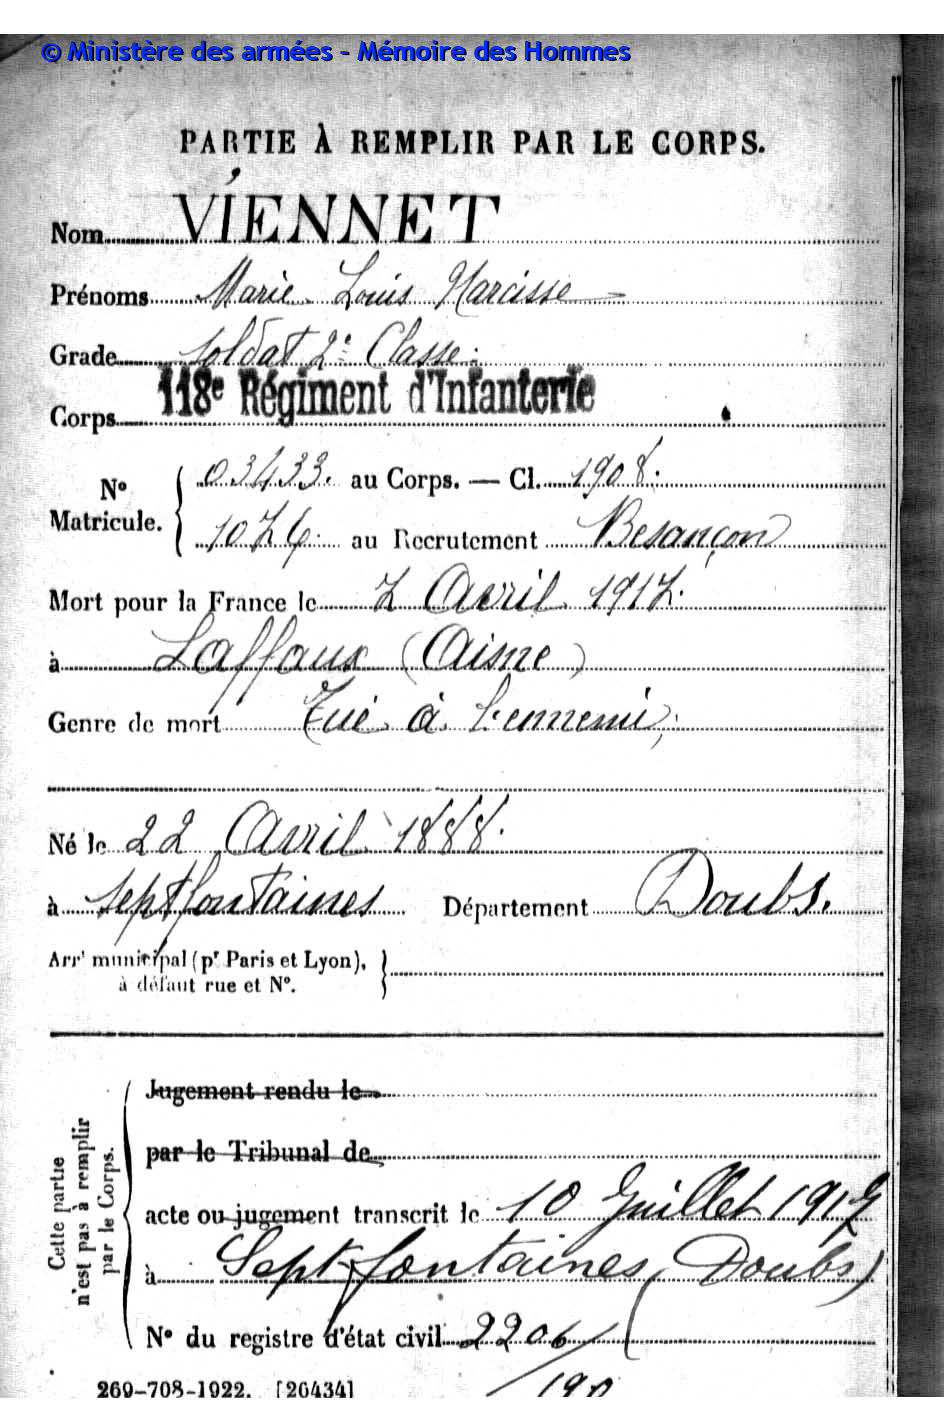 © Ministère des armées - Mémoire des Hommes
PARTIE À REMPLIR PAR LE CORPS.
Nom VIENNET
Prénoms Marie Louis Narcisse
Grade Soldat 2e Classe
Corps 118e Régiment d'Infanterie
N° Matricule. { 03433. au Corps. — Cl. 1908.
1076 au Recrutement Besançon
Mort pour la France le 7 Avril 1917.
à Laffaux (Aisne)
Genre de mort Tué à l'ennemi
Né le 22 Avril 1888.
à Septfontaines Département Doubs.
Arrt municipal (pr Paris et Lyon),
à défaut rue et N°.
Cette partie n'est pas à remplir par le Corps.
Jugement rendu le
par le Tribunal de
acte ou jugement transcrit le 10 Juillet 1917
à Septfontaines (Doubs)
N° du registre d'état civil 2206/
269-708-1922. [26434]